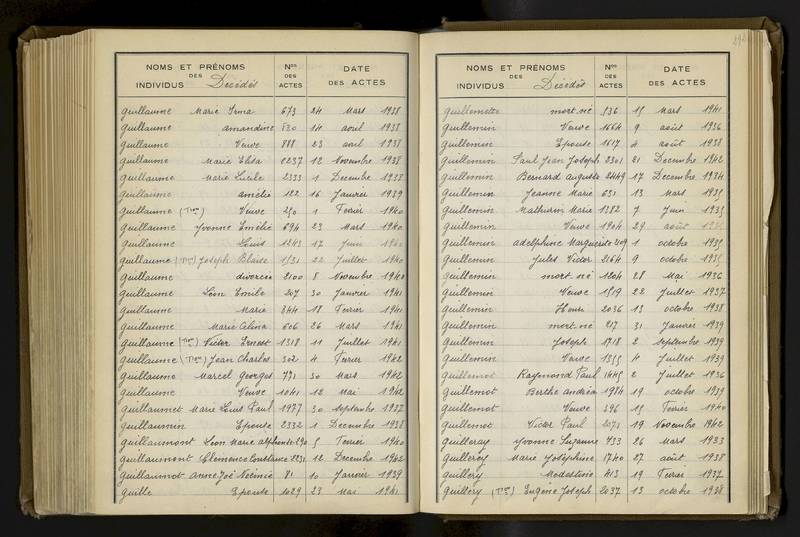 NOMS ET PRÉNOMS Nos DATE
DES DES
INDIVIDUS Décédés ACTES DES ACTES
Guillaume Marie Irma 673 24 Mars 1938
Guillaume amandine 14 avril 1938
Guillaume Veuve 888 23 avril 1938
Guillaume Marie 2237 12 Novembre 1938
Guillaume Marie Lucile 2333 1 Decembre 1938
Guillaume amélie 122 16 Janvier 1939
Guillaume Veuve 250 1 Fevrier 1940
Guillaume Yvonne Emélie 694 23 Mars 1940
Guillaume Louis 1243 17 Juin 1940
Guillaume Joseph Blaise 1531 22 Juillet 1940
Guillaume divorcée 2100 8 Novembre 1940
Guillaume Léon Emile 207 30 Janvier 1941
Guillaume Marie 344 18 Fevrier 1941
Guillaume Marie 606 26 Mars 1941
Guillaume Victor Ernest 1318 11 Juillet 1941
Guillaume Jean Charles 302 4 Fevrier 1942
Guillaume Marcel Georges 771 30 Mars 1942
Guillaume Veuve 1041 12 Mai 1942
Guillaumet Marie Louis Paul 1977 30 Septembre 1937
Guillaumin Epouse 2332 1 Decembre 1938
Guillaumont Léon Marie alphonse 290 5 Fevrier 1940
Guillaumont Clemence Constance 2231 12 Decembre 1942
Guillaumot 81 10 Janvier 1939
Guille Epouse 1029 23 Mai 1941
NOMS ET PRÉNOMS Nos DATE
DES DES
INDIVIDUS Décédés ACTES DES ACTES
Guillemette mort né 536 15 Mars 1941
Guillemin Veuve 1664 9 août 1936
Guillemin Epouse 1617 4 août 1938
Guillemin Paul Jean Joseph 2301 21 Decembre 1942
Guillemin Bernard auguste 2449 17 Decembre 1934
Guillemin Jeanne Marie 631 13 Mars 1935
Guillemin Mathurin Marie 1382 7 Juin 1935
Guillemin Veuve 1904 29 août
Guillemin adelphine Marguerite 1 octobre 1935
Guillemin Jules Victor 2164 9 octobre 1935
Guillemin mort né 1204 28 Mai 1936
Guillemin Veuve 1519 22 Juillet 1937
Guillemin Henri 2036 13 octobre 1938
Guillemin mort né 217 31 Janvier 1939
Guillemin Joseph 1718 2 Septembre 1939
Guillemin Veuve 1355 4 Juillet 1939
Guillemot Raymond Paul 1445 2 Juillet 1936
Guillemot Berthe andréa 1984 19 octobre 1939
Guillemot Veuve 396 15 Fevrier 1940
Guillemot Victor Paul 2071 19 Novembre 1942
Guilleray Yvonne Suzanne 733 26 Mars 1933
Guillerey Marie Joséphine 1740 27 août 1938
Guillery Modestine 413 19 Fevrier 1937
Guillery Eugène Joseph 2037 13 octobre 1938